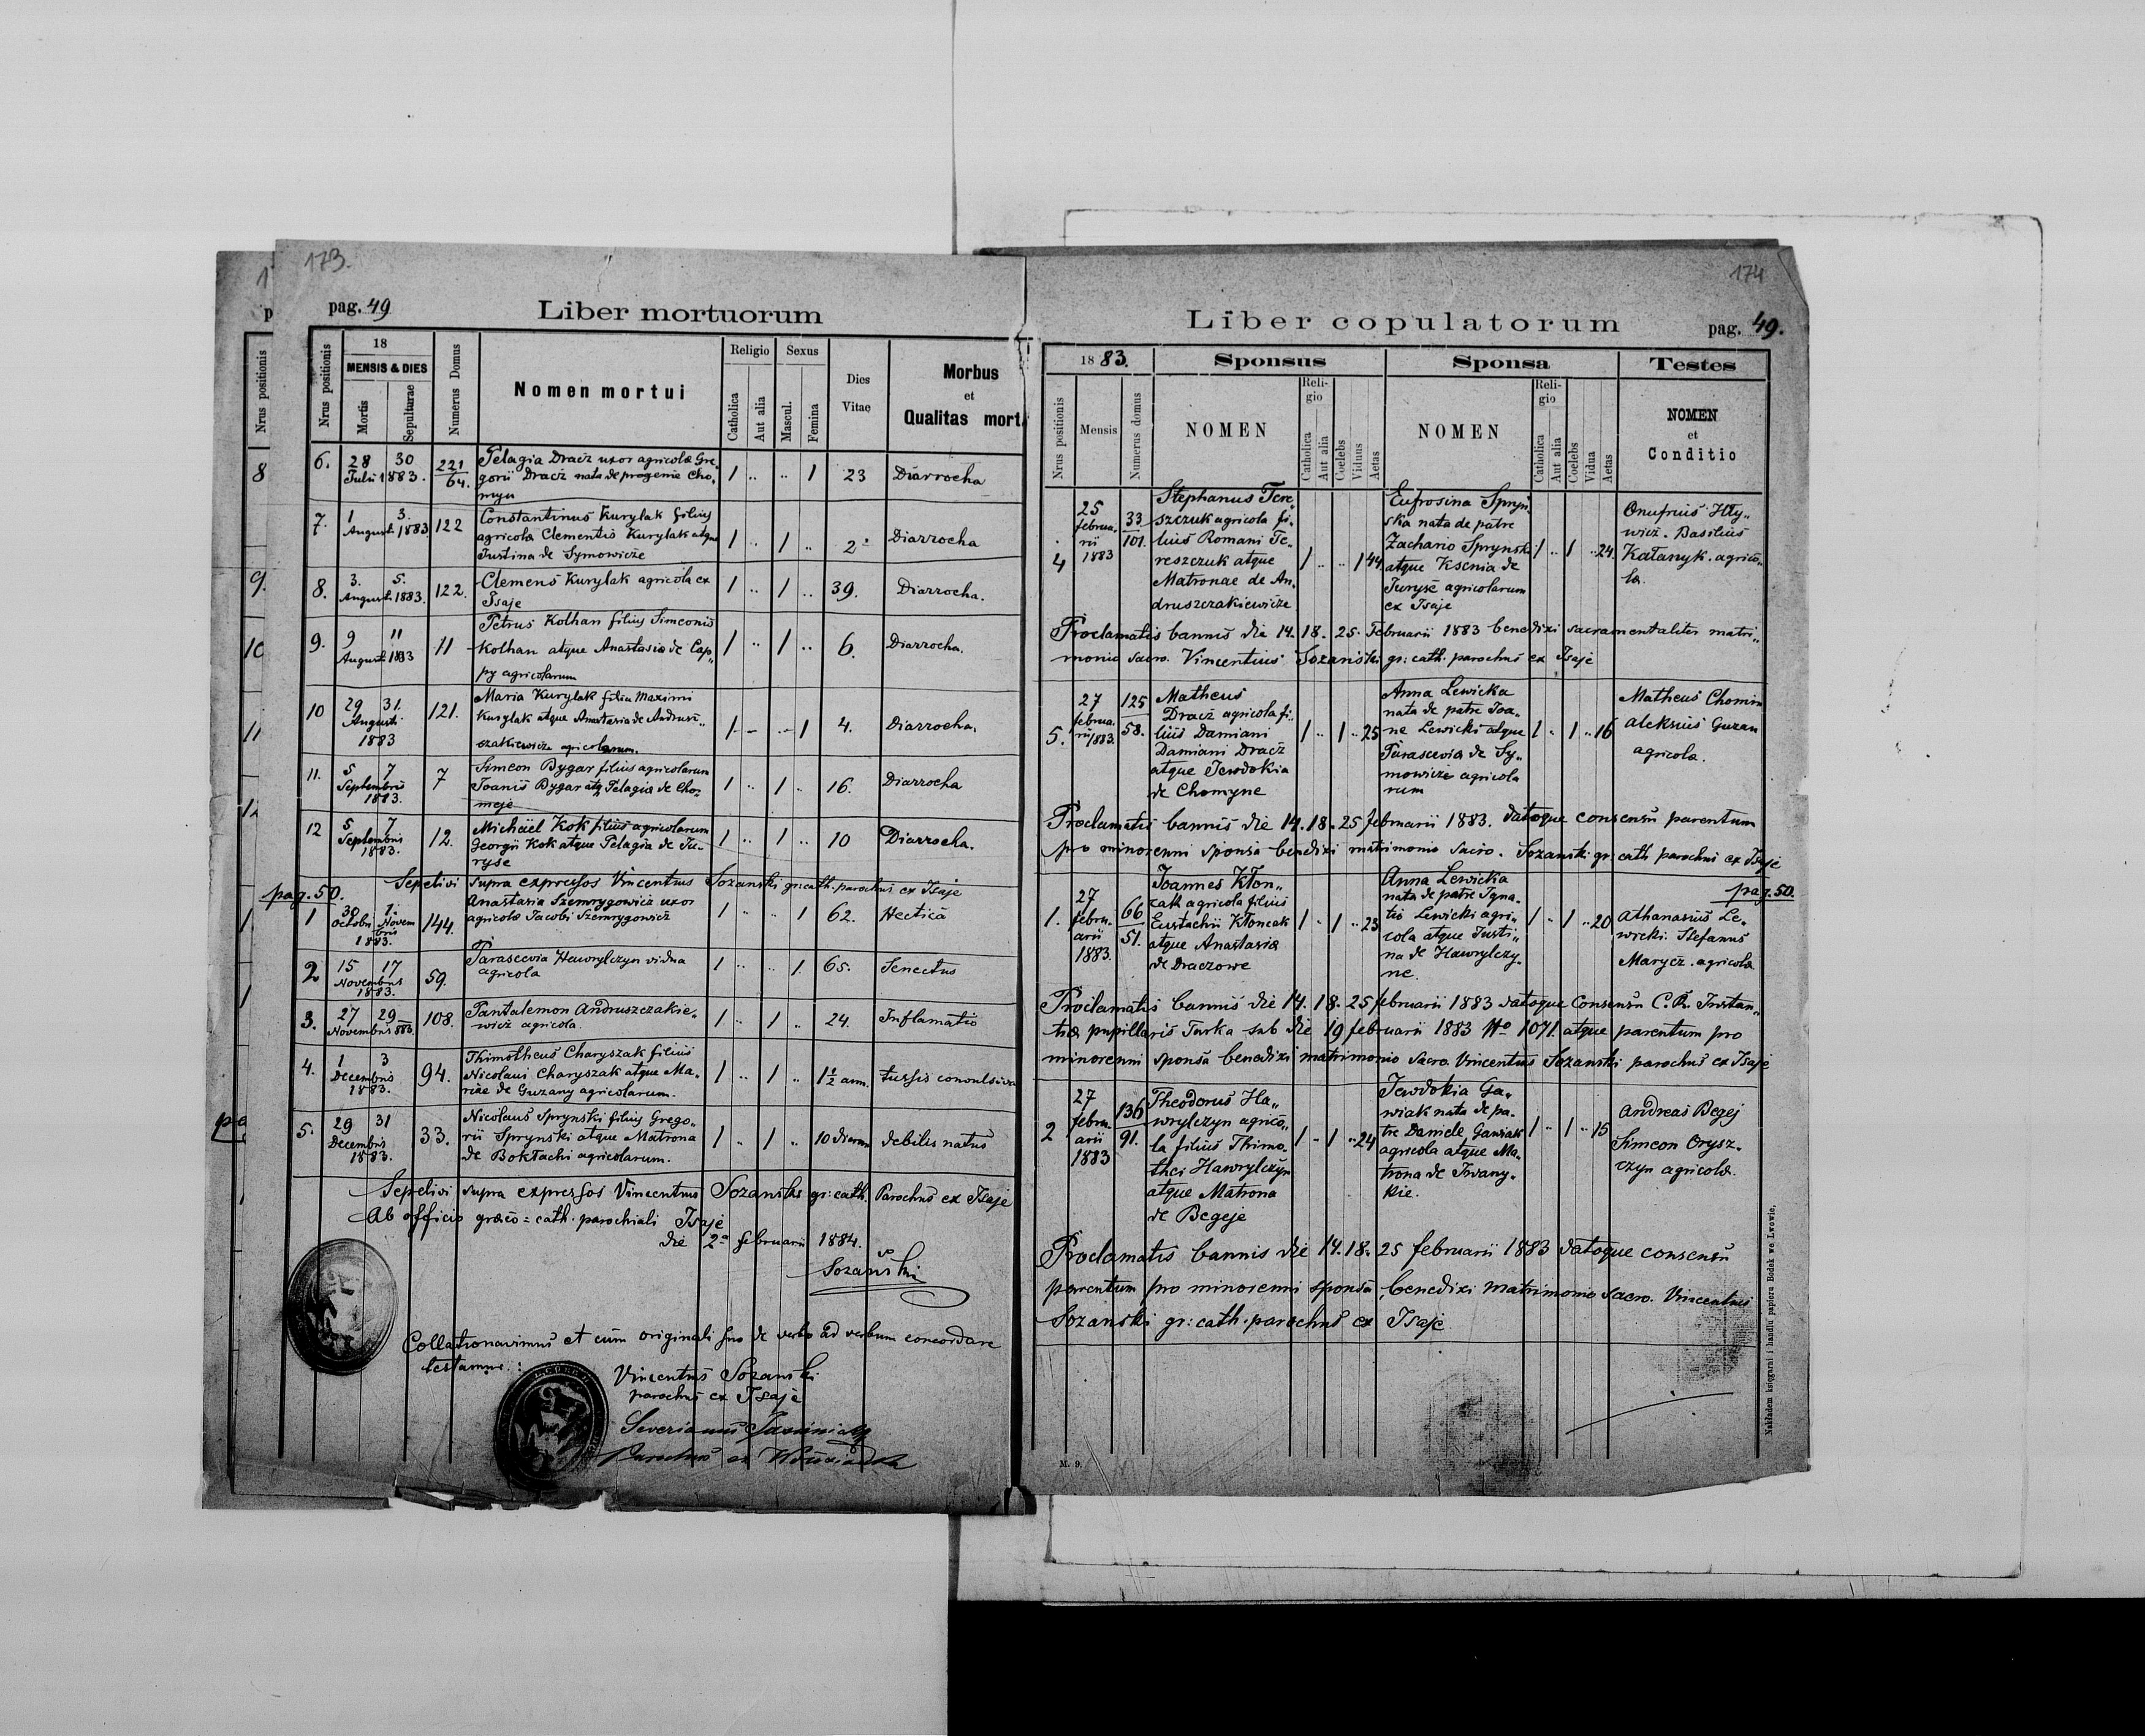 173.
pag. 49
Liber mortuorum
Nrus positionis
18
MENSIS & DIES
Mortis
Sepulturae
Numerus Domus
Nomen mortui
Religio
Catholica
Aut alia
Sexus
Mascul.
Femina
Dies
Vitae
Morbus
et
Qualitas mort
6. 28 30 221 Pelagia Dracz uxor agricolae Gre„
Julii 1883. 64. gorii Dracz nata de progenie Cho„ 1 .. .. 1 23 Diarrocha
myn
7. 1 3. 122 Constantinus Kurylak filius
August. 1883 agricola Clementis Kurylak atque 1 .. 1 .. 2 Diarrocha
Justina de Symowicze
8. 3. 5. 122. Clemens Kurylak agricola ex 1 .. 1 .. 39. Diarrocha.
August. 1883. Isaje
9. 9 11 11 Petrus Kolhan filius Simeonis
August 1883 Kolhan atque Anastasia de Cap„ 1 .. 1 .. 6. Diarrocha.
py agricolarum
10 29 31. 121. Maria Kurylak filia Maximi
Augusti Kurylak atque Anastasia de Andrusz„ 1 .. .. 1 4. Diarrocha.
1883 czakiewicze agricolarum.
11. 5 7 7 Simeon Bygar filius agricolarum
Septembris Joanis Bygar atq Pelagia de Cho„ 1 .. 1 .. 16. Diarrocha
1883. meje
12 5 7 12. Michäel Kok filius agricolarum
Septembris Georgii Kok atque Pelagia de Ju„ 1 .. 1 .. 10 Diarrocha.
1883. ryse
Sepelivi supra expressos Vincentius Sozanski gr: cath. parochus ex Isaje
pag. 50.
1 30 1. 144. Anastasia Szemrygowicz uxor
Octobr Novem agricola Jacobi Szemrygowicz 1 .. .. 1 62. Hectica
bris
1883.
2 15 17 59. Parascevia Hawrylczyn vidua 1 .. .. 1. 65. Senectus
Novembris agricola
1883.
3. 27 29 108. Pantalemon Andruszczakie„ 1 .. 1 .. 24. Inflamatio
Novembris 883. wicz agricola
4. 1 3 94. Thimotheus Charyszak filius
Decembris Nicolaui Charyszak atque Ma„ 1 .. 1 .. 1½ ann. tussis convulsiva
1883. riae de Guzany agricolarum.
5. 29 31 33. Nicolaus Sprynski filius Grego„
Decembris rii Sprynski atque Matrona 1 .. 1 .. 10 dierum debilis natus
1883. de Boktachi agricolarum.
Sepelivi supra expressos Vincentius Sozanski gr: cath. Parochus ex Isaje
Ab officio graeco=cath. parochiali Isaje
die 2a februarii 1884.
Sozański
Collationavimus et cum originali suo de verbo ad verbum concordare
testamur:
Vincentius Sozanski
parochus ex Isaje
Severianus
Parochus ex
174
Liber copulatorum
pag. 49.
1883.
Nrus positionis
Mensis
Numerus domus
Sponsus
NOMEN
Religio
Catholica
Aut alia
Coelebs
Viduus
Aetas
Sponsa
NOMEN
Religio
Catholica
Aut alia
Coelebs
Vidua
Aetas
Testes
NOMEN
et
Conditio
4 25 februarii 1883 33 101.
Stephanus Tere„
szczuk agricola fi„
lius Romani Te„
reszczuk atque
Matronae de An„
druszczakiewicze
1 .. .. 1 44
Eufrosina Spryń„
ska nata de patre
Zachario Sprynski
atque Ksenia de
Jurysz agricolarum
ex Isaje
1 .. 1 .. 24.
Onufrius Hły„
wicz. Basilius
Katanyk. agrico„
la.
Proclamatis bannis die 14. 18. 25. Februarii 1883 benedixi sacramentaliter matri„
monio sacro. Vincentius Sozanski gr: cath. parochus ex Isaje
5. 27 februarii 1883. 125 58.
Matheus
Dracz agricola fi„
lius Damiani
Damiani Dracz
atque Jewdokia
de Chomyne
1 .. 1 .. 25
Anna Lewicka
nata de patre Joa„
ne Lewicki atque
Parascevia de Sy„
mowicze agricola
rum
1 .. 1 .. 16
Matheus Chomin
Aleksius Guzan
agricola.
Proclamatis bannis die 14. 18. 25 februarii 1883. datoque consensu parentum
pro minorenni sponsa benedixi matrimonio sacro. Sozanski gr: cath parochus ex Isaje
pag. 50.
1. 27 februarii 1883. 66 51.
Joannes Kłon„
czak agricola filius
Eustachii Kłonczak
atque Anastasia
de Draczowe
1 .. 1 .. 23
Anna Lewicka
nata de patre Igna„
tio Lewicki agri„
cola atque Justi„
na de Hawrylczy„
ne.
1 .. 1 .. 20
Athanasius Le„
wicki. Stefanus
Marycz. agricola
Proclamatis bannis die 14. 18. 25 februarii 1883 datoque Consensu C. R. Instan„
tiae pupillaris Turka sub die 19 februarii 1883 No 1071. atque parentum pro
minorenni sponsa benedixi matrimonio sacro. Vincentius Sozanski parochus ex Isaje
2 27 februarii 1883 136 91.
Theodorus Ha„
wrylczyn agrico„
la filius Thimo„
thei Hawrylczyn
atque Matrona
de Begeje
1 .. 1 .. 24
Jewdokia Ga„
wiak nata de pa„
tre Daniele Gawiak
agricola atque Ma„
trona de Iwany„
kie.
1 .. 1 .. 15
Andreas Begej
Simeon Orysz„
czyn agricola.
Proclamatis bannis die 14. 18. 25 februarii 1883 datoque consensu
parentum pro minorenni sponsa, benedixi matrimonio sacro. Vincentius
Sozanski gr: cath. parochus ex Isaje
M. 9.
Nakładem księgarni i handlu papieru Bodek we Lwowie.